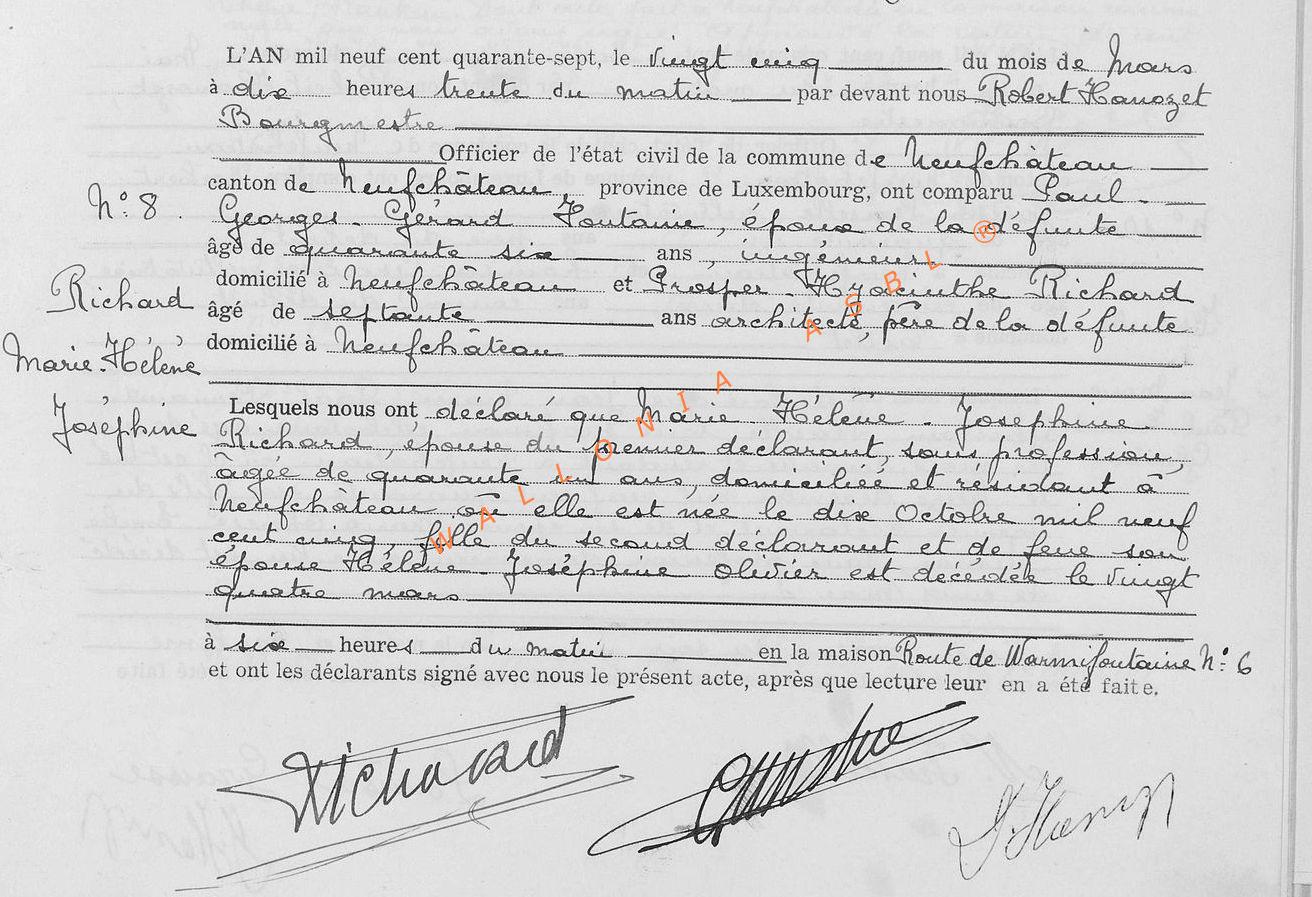 L'AN mil neuf cent quarante-sept, le vingt cinq du mois de Mars
à dix heures trente du matin par devant nous Robert Hanozet
Bourgmestre
Officier de l'état civil de la commune de Neufchâteau
canton de Neufchâteau province de Luxembourg, ont comparu Paul-
N° 8
Georges-Gérard Fontaine, époux de la défunte
âgé de quarante six ans, ingénieur
domicilié à Neufchâteau et Prosper-Hyacinthe Richard
âgé de septante ans architecte, père de la défunte
domicilié à Neufchâteau
Richard
Marie-Hélène
Joséphine
Lesquels nous ont déclaré que Marie-Hélène-Joséphine
Richard, épouse du premier déclarant, sans profession,
âgée de quarante un ans, domiciliée et résidant à
Neufchâteau où elle est née le dix Octobre mil neuf
cent cinq, fille du second déclarant et de feue son
épouse Hélène-Joséphine Olivier est décédée le vingt
quatre mars
à six heures du matin en la maison Route de Warmifontaine N° 6
et ont les déclarants signé avec nous le présent acte, après que lecture leur en a été faite.
Richard
WALLONIA ASBL ®